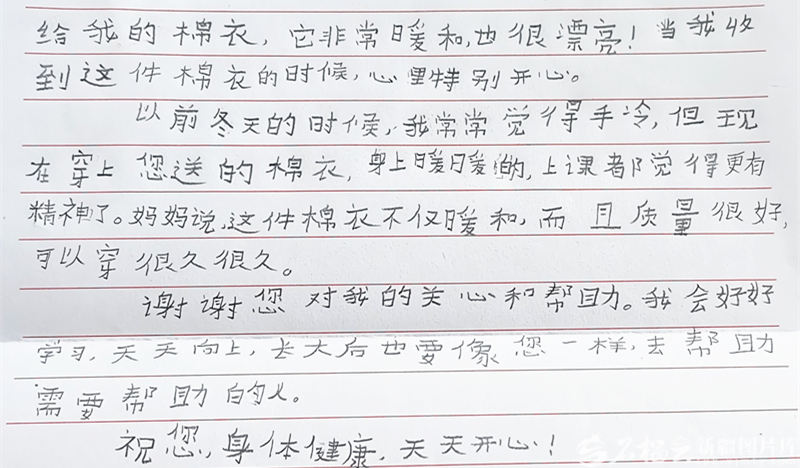 给我的棉衣，它非常暖和，也很漂亮！当我收
到这件棉衣的时候，心里特别开心。
以前冬天的时候，我常常觉得手冷，但现
在穿上您送的棉衣，身上暖暖的，上课都觉得更有
精神了。妈妈说，这件棉衣不仅暖和，而且质量很好，
可以穿很久很久。
谢谢您对我的关心和帮助。我会好好
学习，天天向上，长大后也要像您一样，去帮助
需要帮助的人。
祝您，身体健康，天天开心！
新疆图片库